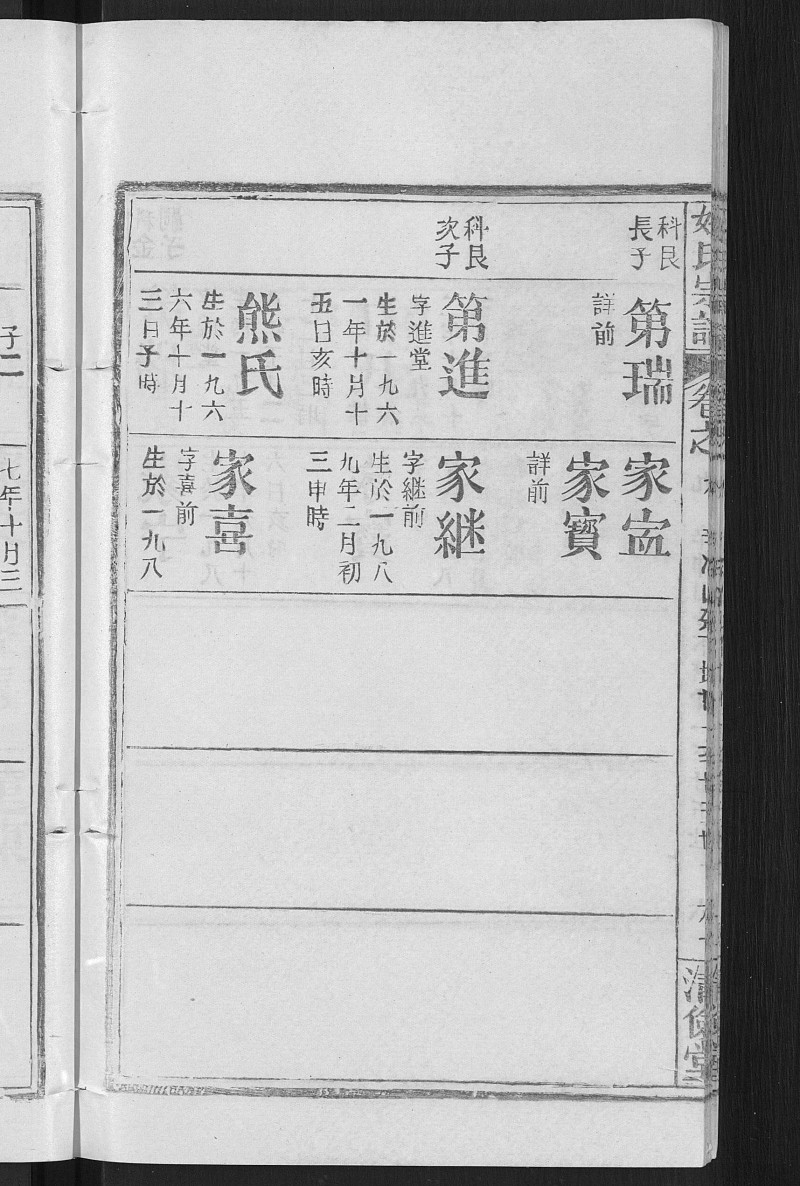 科艮
長子
第瑞
詳前
科艮
次子
第進
字進堂
生於一九六
一年十月十
五日亥時
熊氏
生於一九六
六年十月十
三日子時
家寍
家寳
詳前
家継
字継前
生於一九八
九年二月初
三申時
家喜
字喜前
生於一九八
氏宗譜
卷之
堂
子二
七年十月三